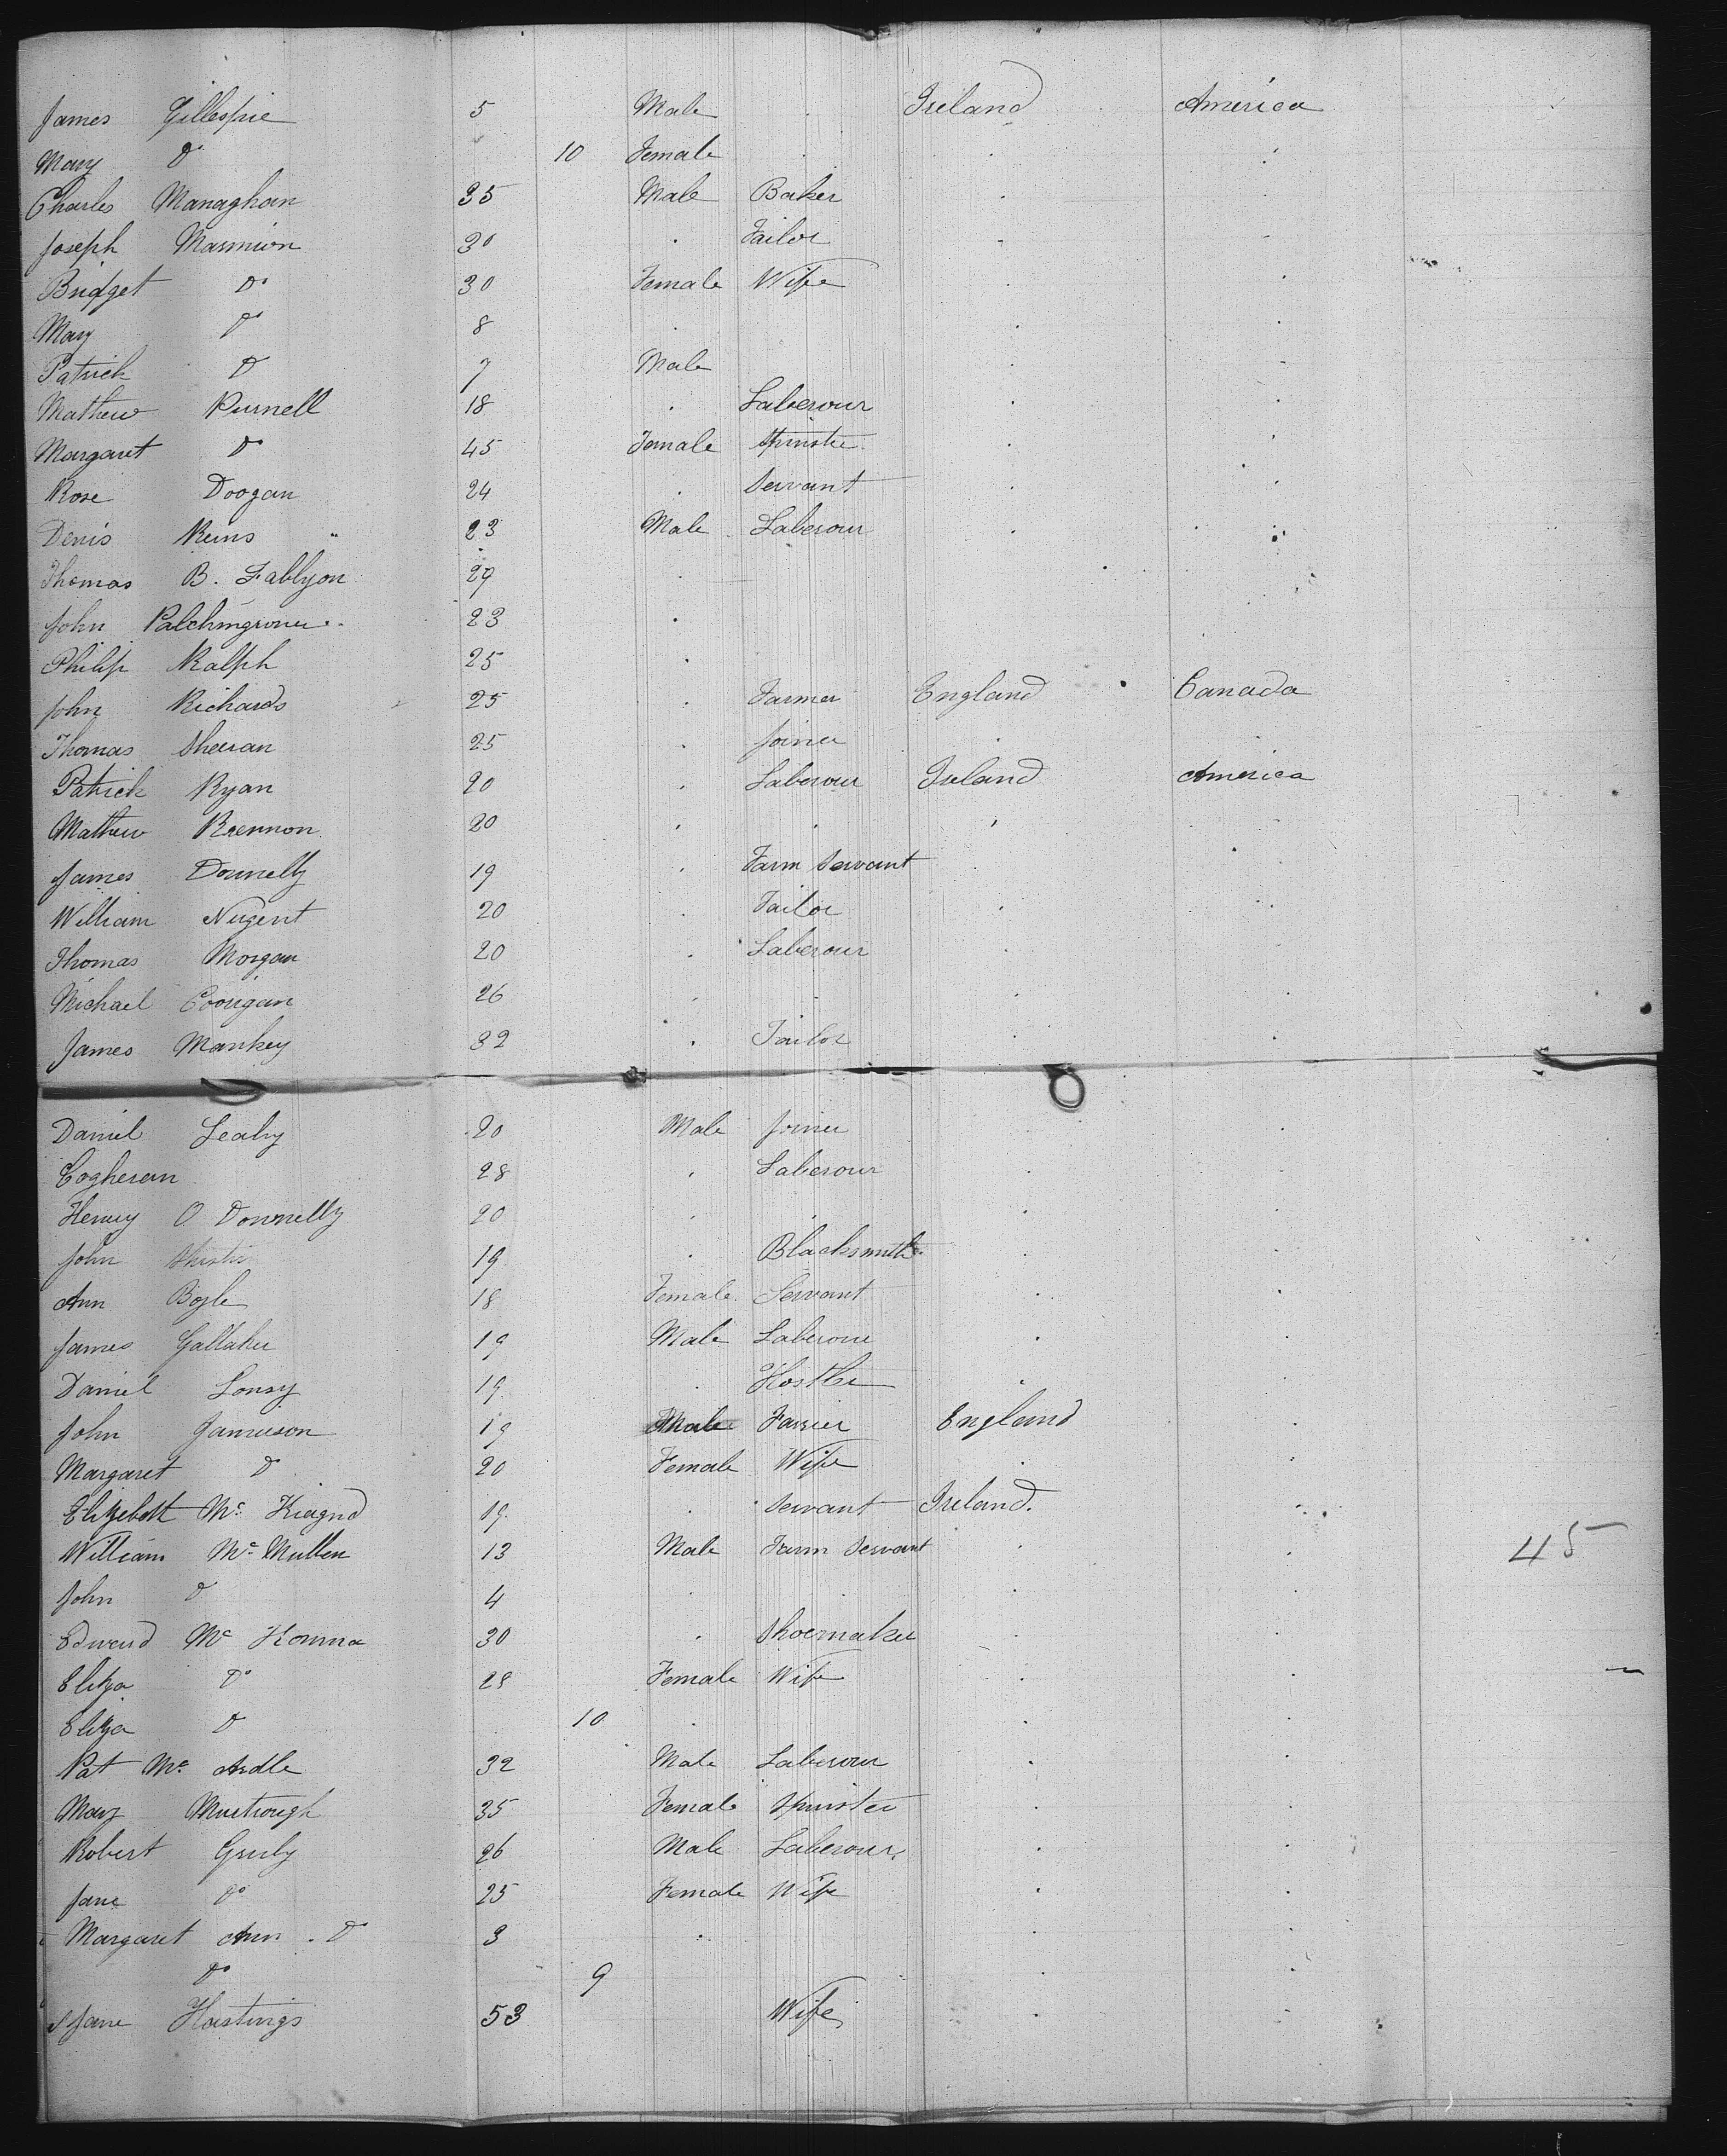 James Gillespie 5 Male Ireland America
Mary Do 10 Female
Charles Managhan 35 Male Baker
Joseph Marmion 30 Tailor
Bridget Do 30 Female Wife
Mary Do 8
Patrick D 7 Male
Mathew Purnell 18 Laberour
Margaret Do 45 Female Spinster
Rose Doogan 24 Servant
Denis 23 Male Laberour
Thomas B. 29
John 23
Philip Ralph 25
John Richards 25 Farmer England Canada
Thomas Sheeran 25 Joiner
Patrick Ryan 20 Laberour Ireland America
Mathew Brennon 20
James Donnelly 19 Farm Servant
William Nugent 20 Tailor
Thomas Morgan 20 Laberour
Michael 26
James Mankey 32 Tailor
Daniel Leahy 20 Male Joiner
Cogheran 28 Laberour
Henry O Donnelly 20
John 19 Blacksmith
Ann Boyle 18 Female Servant
James Gallaher 19 Male Laberour
Daniel 19 Hostler
John Jamieson 19 Male Farrier England
Margaret D 20 Female Wife
Mc 19 Servant Ireland.
William Mc Mullen 13 Male Farm Servant 45
John D 4
Edward Mc Kenna 30 Shoemaker
Eliza Do 28 Female Wife
Eliza D 10
Pat Mc Ardle 32 Male Laberour
Mary Murtough 35 Female Spinster
Robert 26 Male Laberour
Jane Do 25 Female Wife
Margaret Ann D 3
Do 9
Jane Hastings 53 Wife